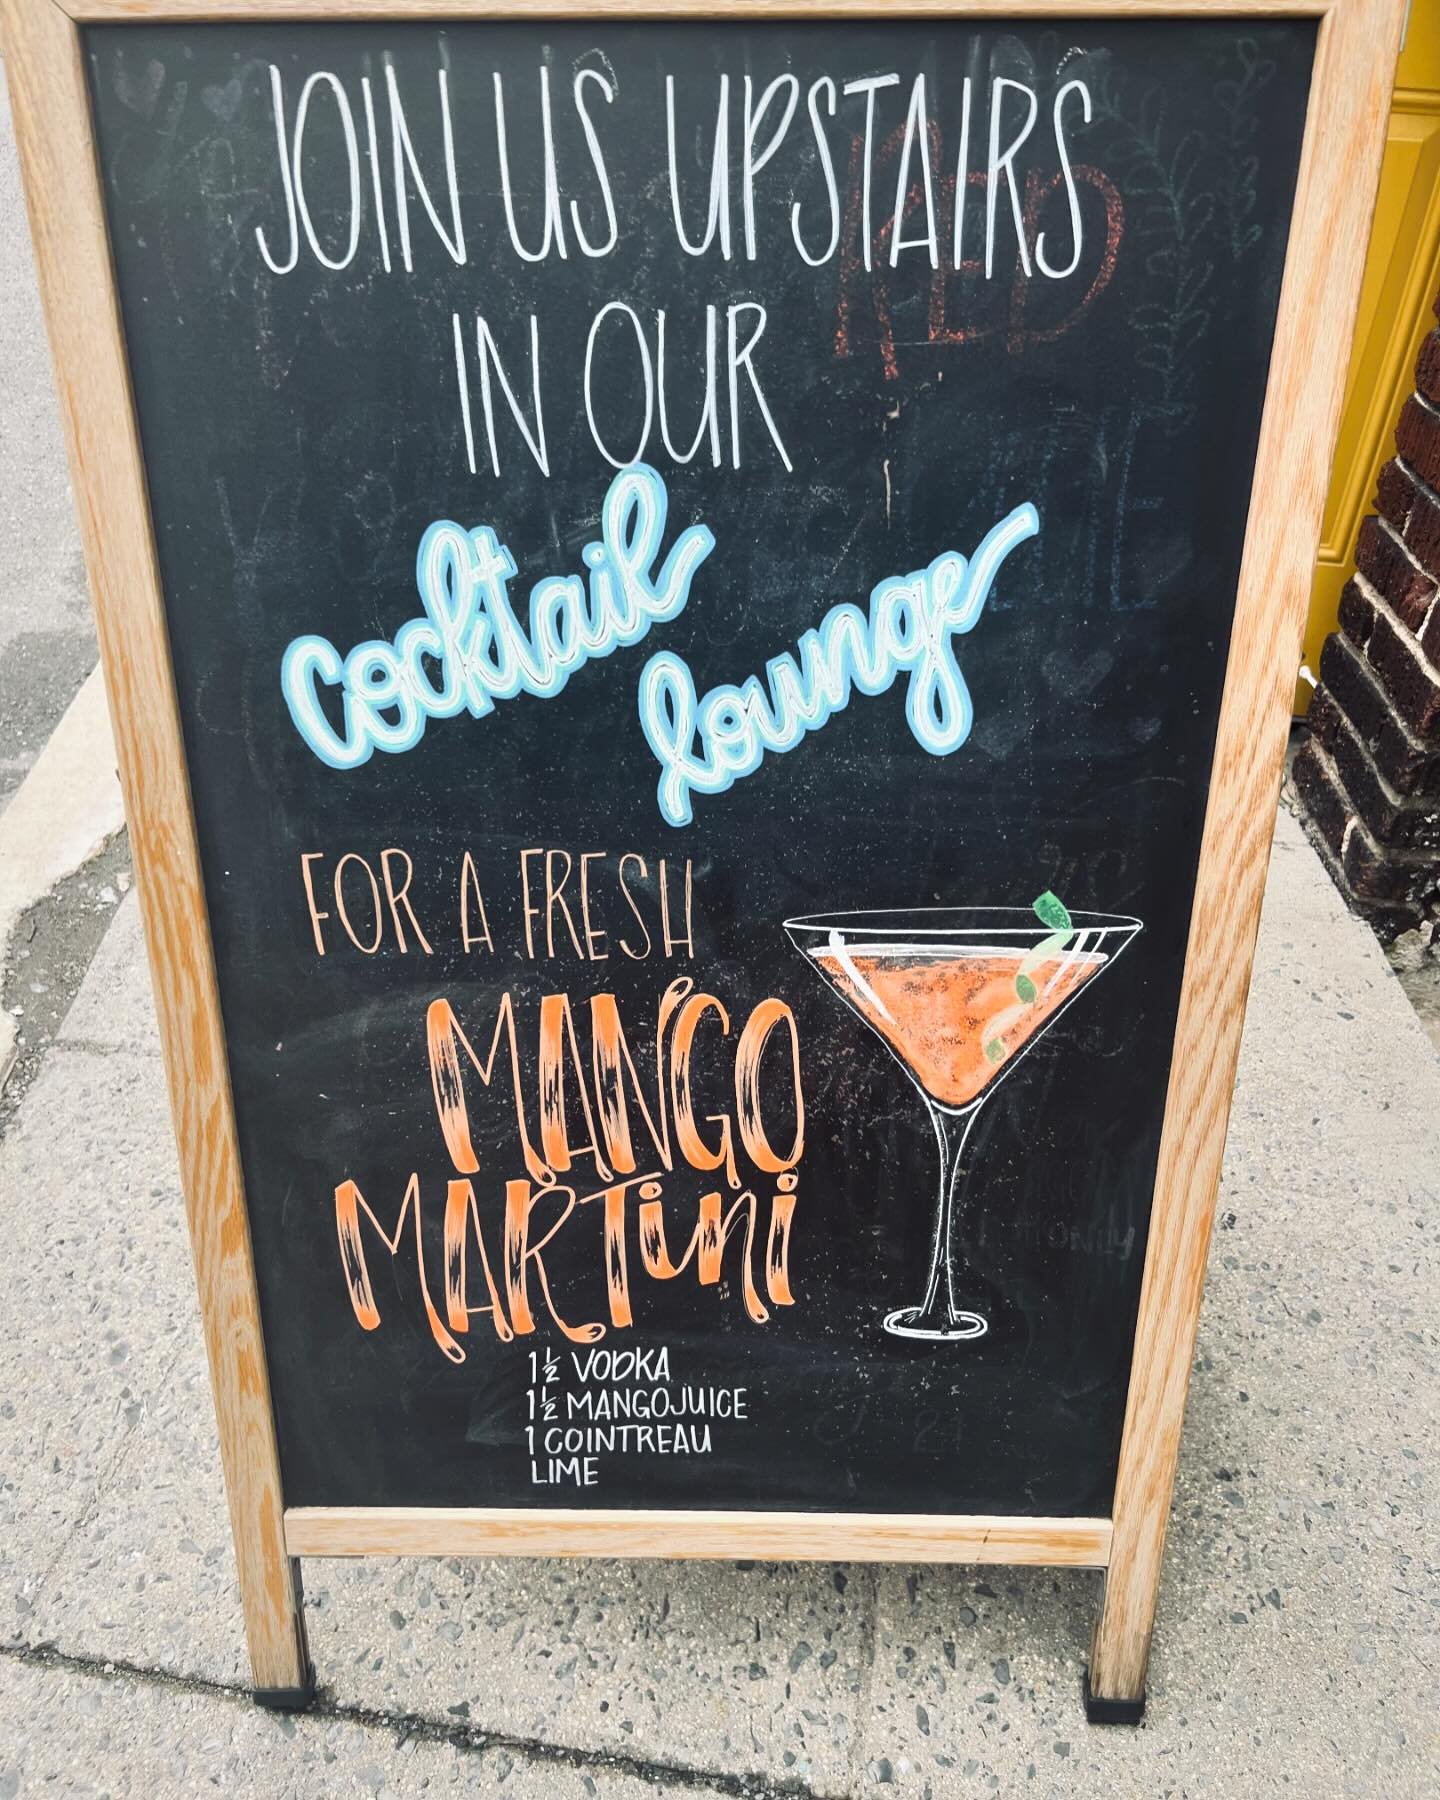 JOIN US UPSTAIRS
IN OUR
cocktail
lounge
FOR A FRESH
MANGO
MARTini
1½ VODKA
1½ MANGO JUICE
1 COINTREAU
LIME